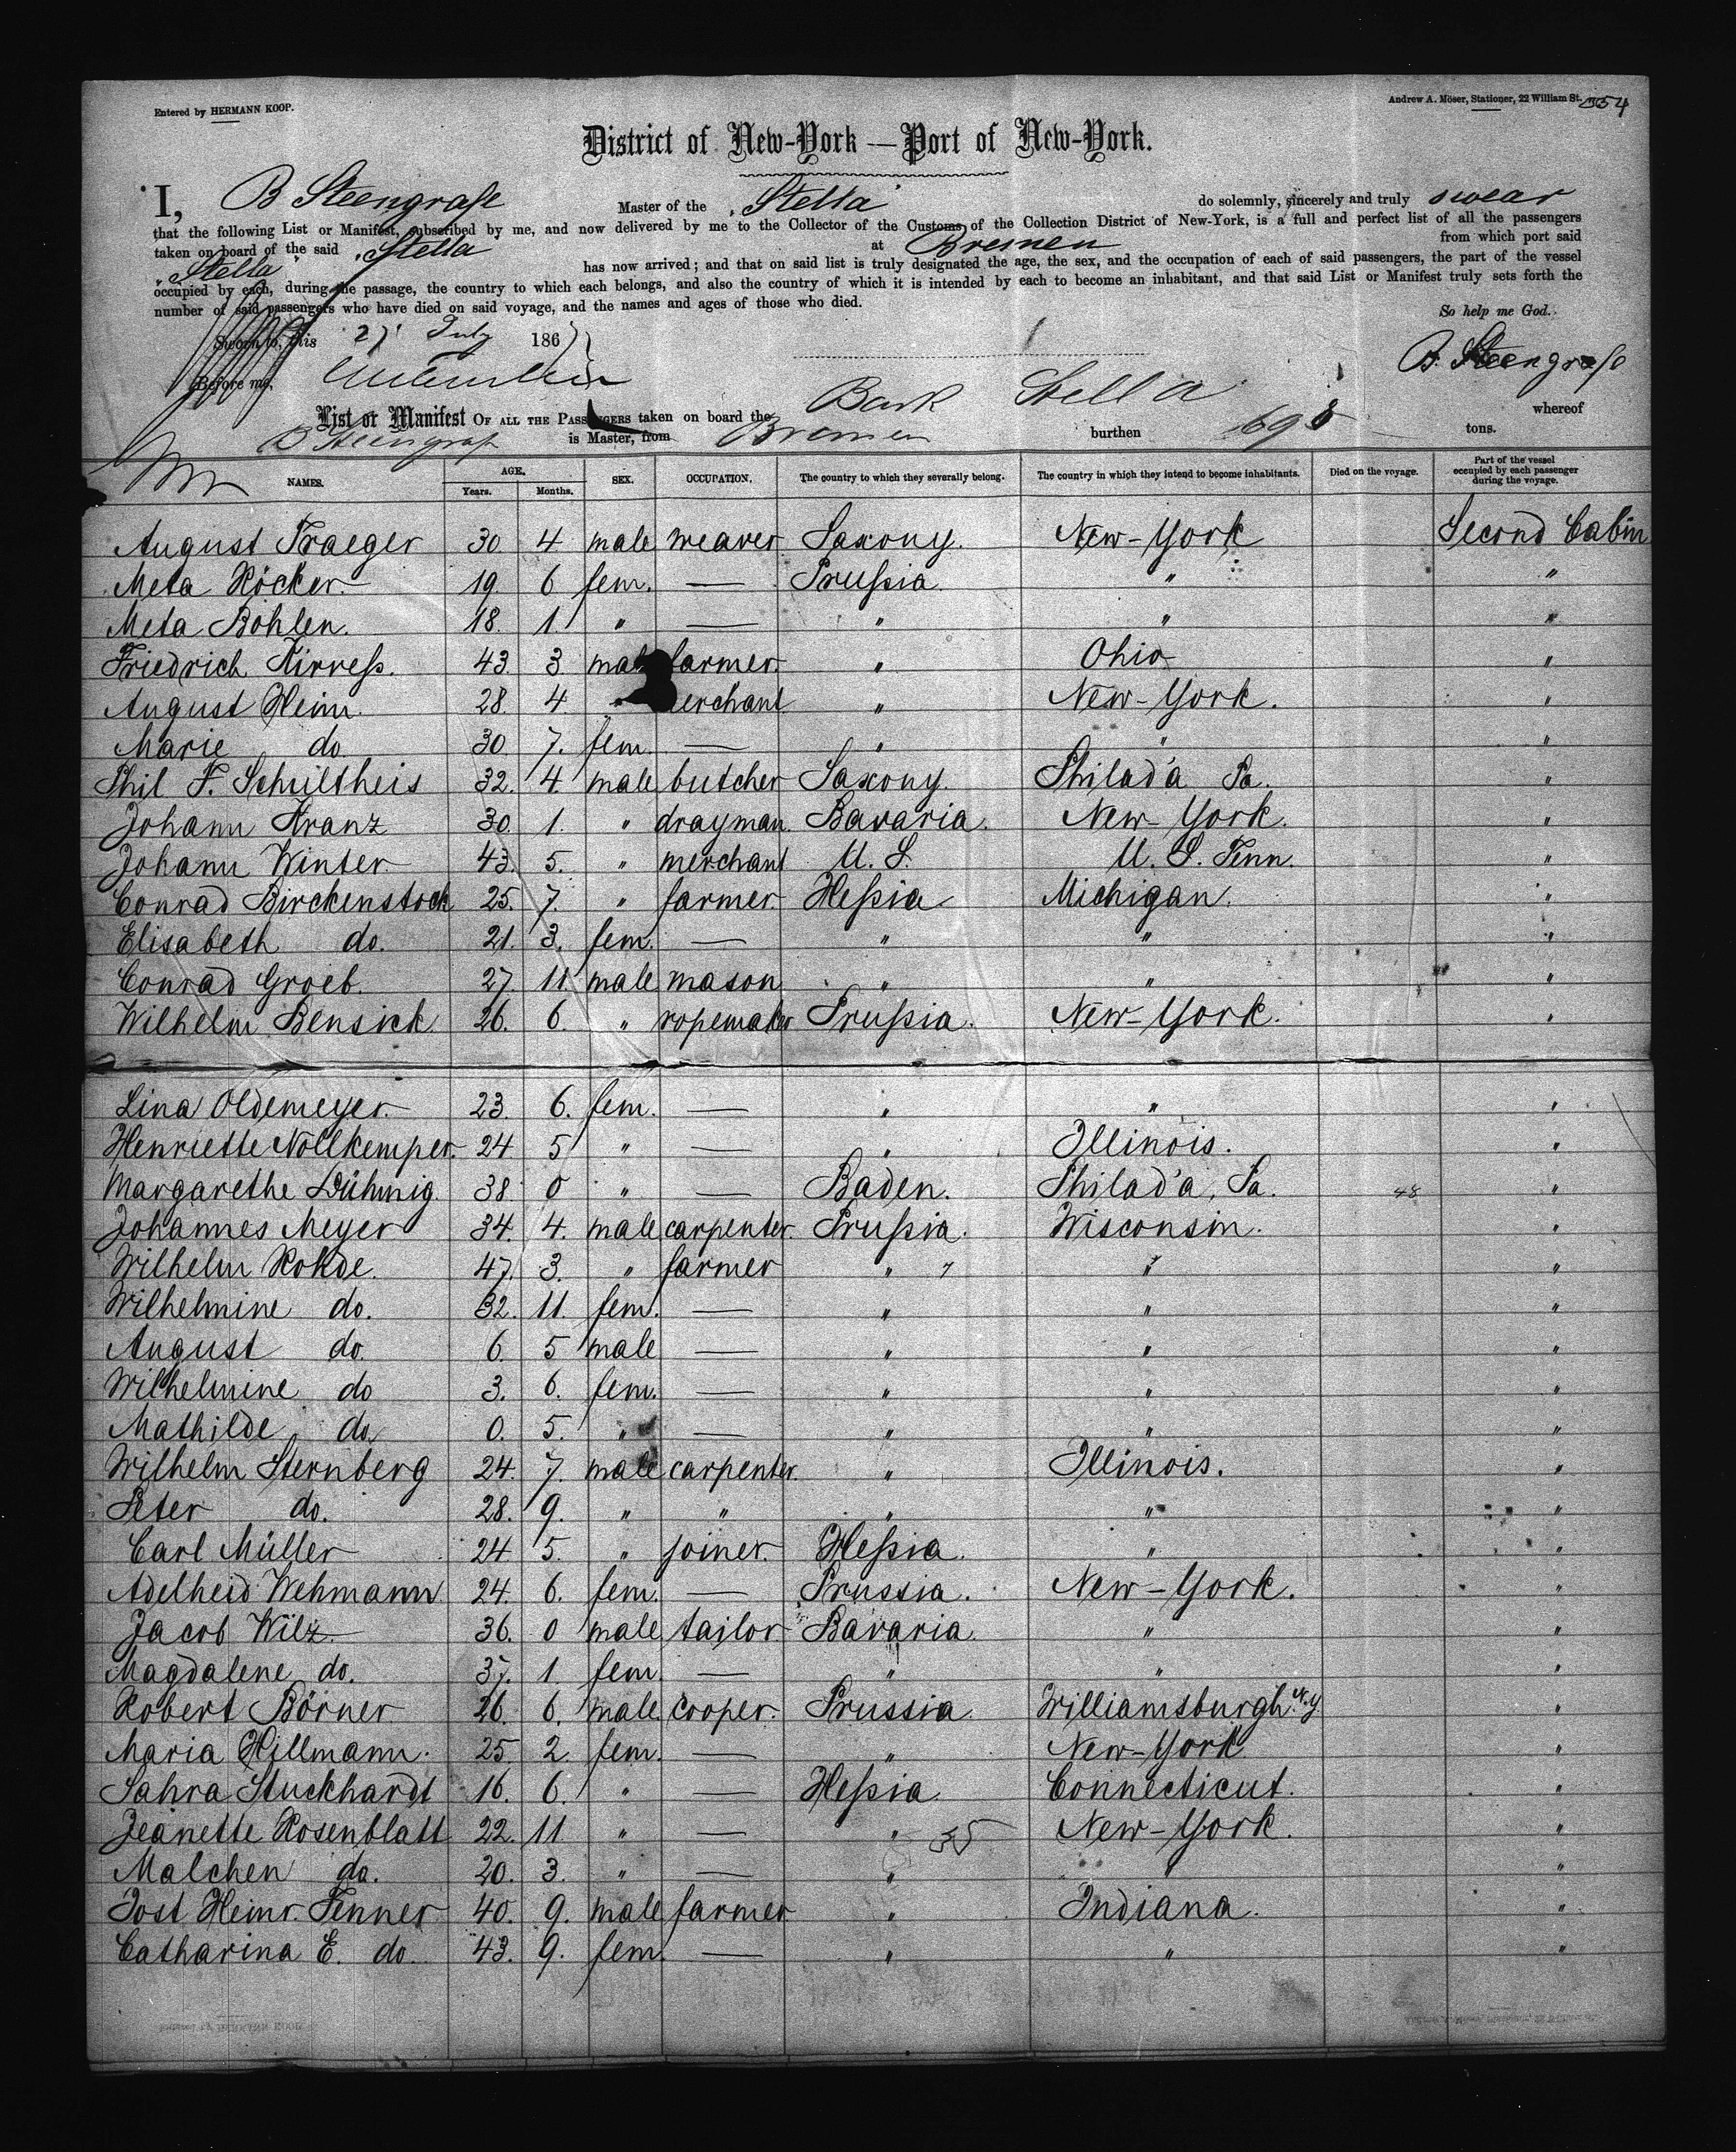 Entered by HERMANN KOOP.
Andrew A. Möser, Stationer, 22 William St. 554
District of New-York — Port of New-York.
I, B Steengrafe Master of the „Stella" do solemnly, sincerely and truly swear
that the following List or Manifest, subscribed by me, and now delivered by me to the Collector of the Customs of the Collection District of New-York, is a full and perfect list of all the passengers
taken on board of the said „Stella" at Bremen from which port said
„Stella" has now arrived; and that on said list is truly designated the age, the sex, and the occupation of each of said passengers, the part of the vessel
occupied by each, during the passage, the country to which each belongs, and also the country of which it is intended by each to become an inhabitant, and that said List or Manifest truly sets forth the
number of said passengers who have died on said voyage, and the names and ages of those who died.
So help me God.
Sworn to, this 27 July 1867
B. Steengrafe
Before me,
List or Manifest OF ALL THE PASSENGERS taken on board the Bark Stella whereof
B Steengrafe is Master, from Bremen burthen 698 tons.
NAMES. AGE. Years. Months. SEX. OCCUPATION. The country to which they severally belong. The country in which they intend to become inhabitants. Died on the voyage. Part of the vessel occupied by each passenger during the voyage.
August Traeger 30. 4 male weaver Saxony. New-York Second Cabin
Meta Köcker 19. 6 fem. — Prußia. " "
Meta Böhlen. 18. 1. " — " " "
Friedrich Kirreß. 43. 3. male farmer. " Ohio "
August Heim. 28. 4. " merchant " New-York. "
Marie do 30. 7. fem. — " " "
Phil F. Schultheis 32. 4 male butcher Saxony. Philad'a Pa. "
Johann Kranz 30. 1. " drayman. Bavaria. New-York. "
Johann Winter 43. 5. " merchant U. S. U. S. Tenn. "
Conrad Birckenstock 25. 7. " farmer. Heßia Michigan. "
Elisabeth do. 21. 3. fem. — " " "
Conrad Groeb. 27. 11. male mason " " "
Wilhelm Bensick 26. 6. " ropemaker Prußia. New-York. "
Lina Oldemeyer. 23. 6. fem. — " " "
Henriette Nollkemper. 24 5 " — " Illinois. "
Margarethe Dühmig. 38 0 " — Baden. Philad'a, Pa. 48 "
Johannes Meyer 34. 4. male carpenter. Prußia. Wisconsin. "
Wilhelm Rohde. 47. 3. " farmer " 7 " "
Wilhelmine do. 32. 11. fem. — " " "
August do. 6. 5 male — " " "
Wilhelmine do 3. 6. fem. — " " "
Mathilde do. 0. 5. " — " " "
Wilhelm Sternberg 24. 7. male carpenter. " Illinois. "
Peter do. 28. 9. " " " " "
Carl Müller 24 5. " joiner. Heßia. " "
Adelheid Wehmann 24. 6. fem. — Prussia. New-York. "
Jacob Wilz. 36. 0 male tailor Bavaria. " "
Magdalene do. 37. 1 fem. — " " "
Robert Börner 26. 6. male cooper. Prussia. Williamsburgh. N.Y. "
Maria Hillmann. 25. 2. fem. — " New-York "
Sahra Stuckhardt 16. 6. " — Heßia. Connecticut. "
Jeanette Rosenblatt 22. 11 " — " 35 New-York. "
Malchen do. 20. 3. " — " " "
Jost Heinr. Fenner 40. 9. male farmer " Indiana. "
Catharina E. do. 43. 9. fem. — " " "